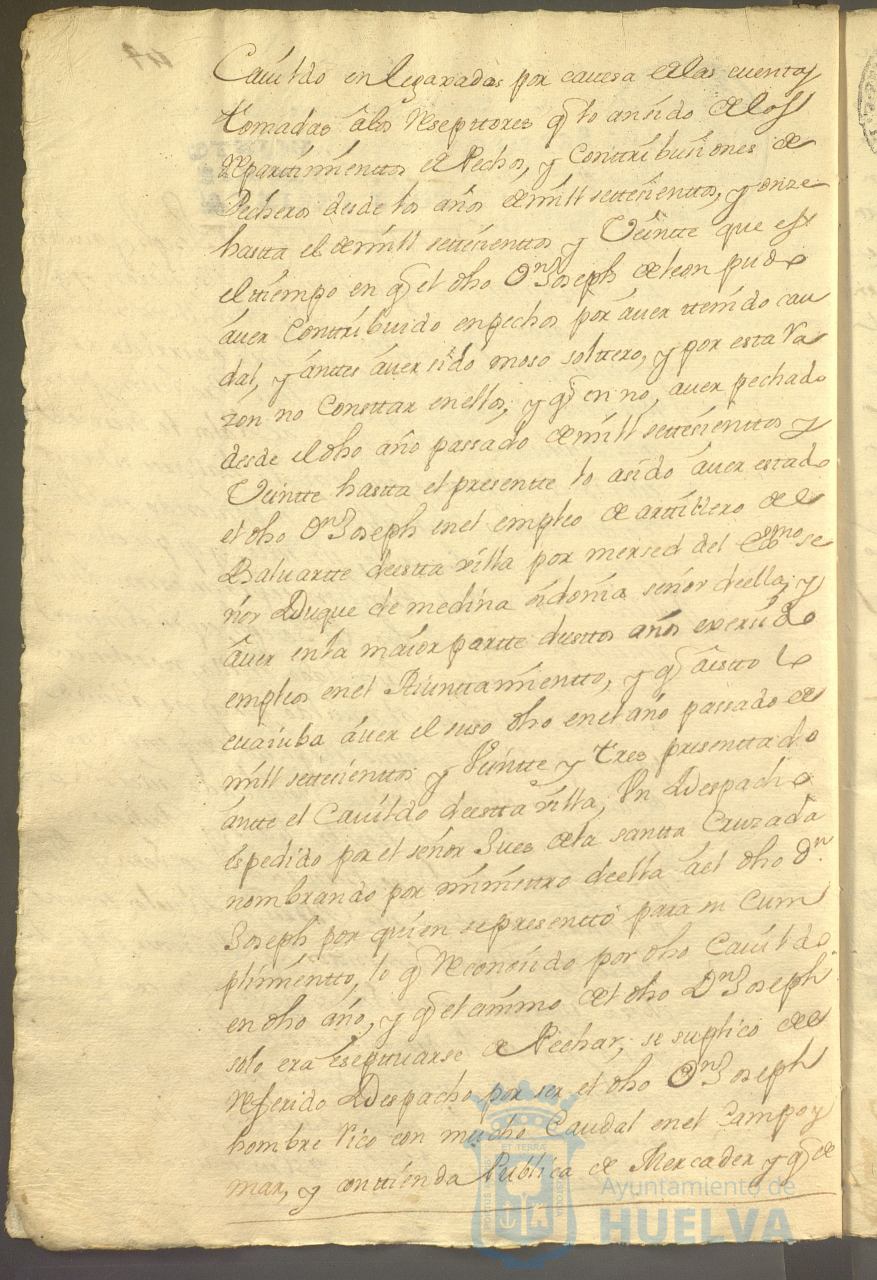 Cauildo enlegaxadas por causa de las cuentas
tomadas âlos Reseptores q̃ lo ansido delos
repartimientos de Pechos, y Conttribusiones de
Pecheros desde los años de mill settesienttos, y onze
hastta el de mill settesienttos y Veintte que es
el ttiempo en q̃ el dho Dn Joseph de leon pudo
áuer Conttribuido en pechos por áuer ttenido cau
dal, y ánttes áuer sido moso solttero, y por esta Ra
zón no Consttar en ellos, y q̃ en no, auer pechado
desde el dho año passado de mill settesienttos y
Veintte hastta el presentte lo asido áuer estado
el dho Dn Joseph en el empleo de arttillero de el
Baluartte deestta villa por mersed del Exmo se
ñor Duque de medina sidonia señor deella, y
áuer en la maior partte desttos años exersido
empleos en el Aiunttamientto, y q̃ áestto lo
cuaiuba áuer el suso dho en el año passado de
mill settesienttos y Veintte y Tres presenttado
ántte el Cauildo deestta villa, Vn Despacho
espedido por el señor Jues dela santta Cruzada
nombrando por ministtro deella ael dho Dn
Joseph por quien se presenttó para su Cum
plimientto, lo q̃ Reconosido por dho Cauildo
en dho año, y q̃ el animo de el dho Dn Joseph
solo era esquuarse de Pechar, se suplico de el
Referido Despacho por ser el dho Dn Joseph
hombre Rico con mucho Caudal en el Campo y
mar, y con ttienda Publica de Mercader y q̃ de
Ayuntamiento de
HUELVA